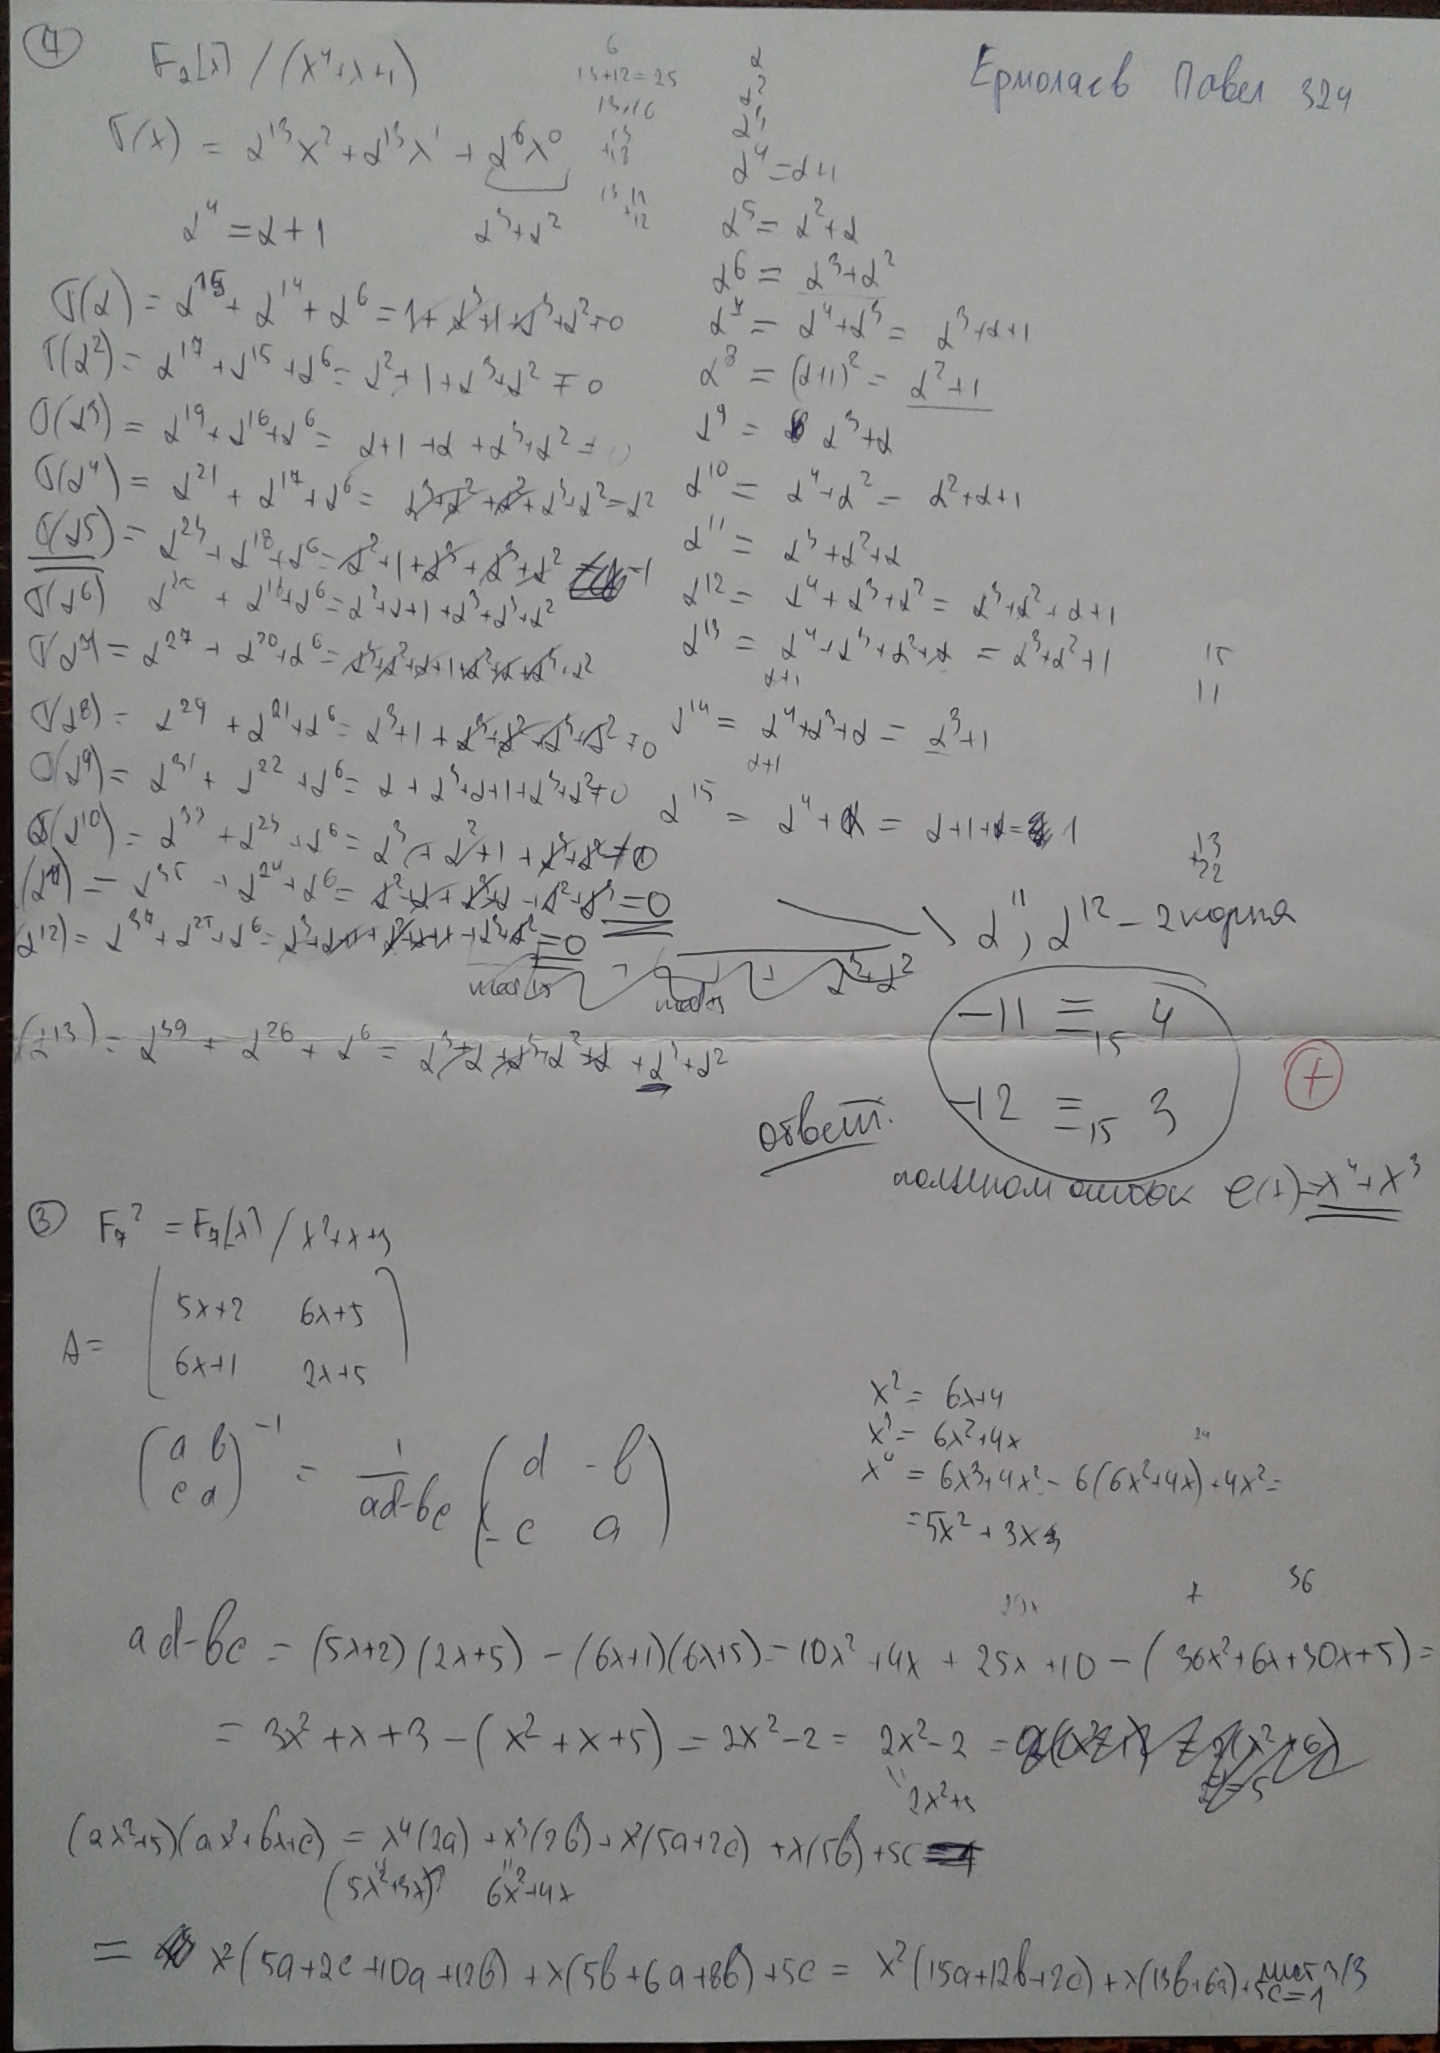 ④ F₂[x] / (x⁴+x+1)
Ермолаев Павел 324
σ(x) = α¹³x² + α¹³x¹ + α⁶x⁰
α⁴ = α+1
α³+α²
13+12=25
α
α²
α³
α⁴ = α+1
α⁵ = α²+α
α⁶ = α³+α²
α⁷ = α⁴+α³ = α³+α+1
α⁸ = (α+1)² = α²+1
α⁹ = α³+α
α¹⁰ = α⁴+α² = α²+α+1
α¹¹ = α³+α²+α
α¹² = α⁴+α³+α² = α³+α²+α+1
α¹³ = α⁴+α³+α²+α = α³+α²+1
α+1
α¹⁴ = α⁴+α³+α = α³+1
α+1
α¹⁵ = α⁴+α = α+1+α = 1
15
11
13
+22
σ(α) = α¹⁵ + α¹⁴ + α⁶ = 1+α³+1+α³+α² ≠ 0
σ(α²) = α¹⁷ + α¹⁵ + α⁶ = α²+1+α³+α² ≠ 0
σ(α³) = α¹⁹ + α¹⁶ + α⁶ = α+1+α+α³+α² ≠ 0
σ(α⁴) = α²¹ + α¹⁷ + α⁶ = α³+α²+α²+α³+α² = α²
σ(α⁵) = α²³ + α¹⁸ + α⁶ = α²+1+α³+α³+α² = 1
σ(α⁶) α²⁵ + α¹⁹ + α⁶ = α²+α+1+α³+α³+α²
σ(α⁷) = α²⁷ + α²⁰ + α⁶ = α³+α²+α+1+α²+α+α³+α²
σ(α⁸) = α²⁹ + α²¹ + α⁶ = α³+1+α³+α²+α³+α² ≠ 0
σ(α⁹) = α³¹ + α²² + α⁶ = α+α³+α+1+α³+α² ≠ 0
σ(α¹⁰) = α³³ + α²³ + α⁶ = α³+α²+1+α³+α² ≠ 0
(α¹¹) = α³⁵ + α²⁴ + α⁶ = α²+α+α³+α+α²+α³ = 0
(α¹²) = α³⁷ + α²⁵ + α⁶ = α³+α+1+α²+α+1+α³+α² = 0
mod 15 mod 15 α³+α²
α¹¹, α¹² – 2 корня
(α¹³) = α³⁹ + α²⁶ + α⁶ = α³+α+α³+α²+α+α³+α²
−11 ≡₁₅ 4
−12 ≡₁₅ 3
+
ответ.
полином ошибок e(x)=x⁴+x³
③ F₇² = F₇[x] / x²+x+3
A = (5x+2 6x+5
6x+1 2x+5)
(a b
c d)⁻¹ = 1/(ad−bc) (d −b
−c a)
x² = 6x+4
x³ = 6x²+4x
x⁴ = 6x³+4x² = 6(6x²+4x)+4x² =
= 5x² + 3x
36
ad−bc = (5x+2)(2x+5) − (6x+1)(6x+5) = 10x²+4x+25x+10 − (36x²+6x+30x+5) =
= 3x²+x+3 − (x²+x+5) = 2x²−2 = 2x²−2 =
2x²+5
(2x²+5)(ax²+bx+c) = x⁴(2a) + x³(2b) + x²(5a+2c) + x(5b) + 5c
(5x²+3x) 6x²+4x
= x²(5a+2c+10a+12b) + x(5b+6a+8b) + 5c = x²(15a+12b+2c) + x(13b+6a) + 5c=1
лист 3